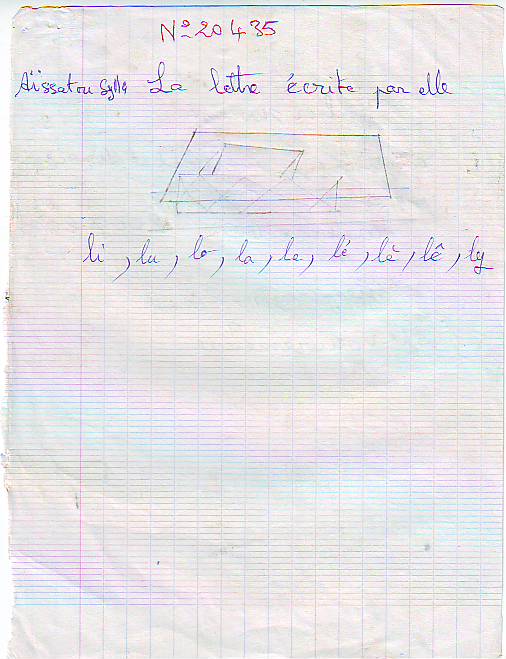 N° 20 435
Aïssatou Sylla La lettre écrite par elle
li, lu, lo, la, le, lé, lè, lê, ly